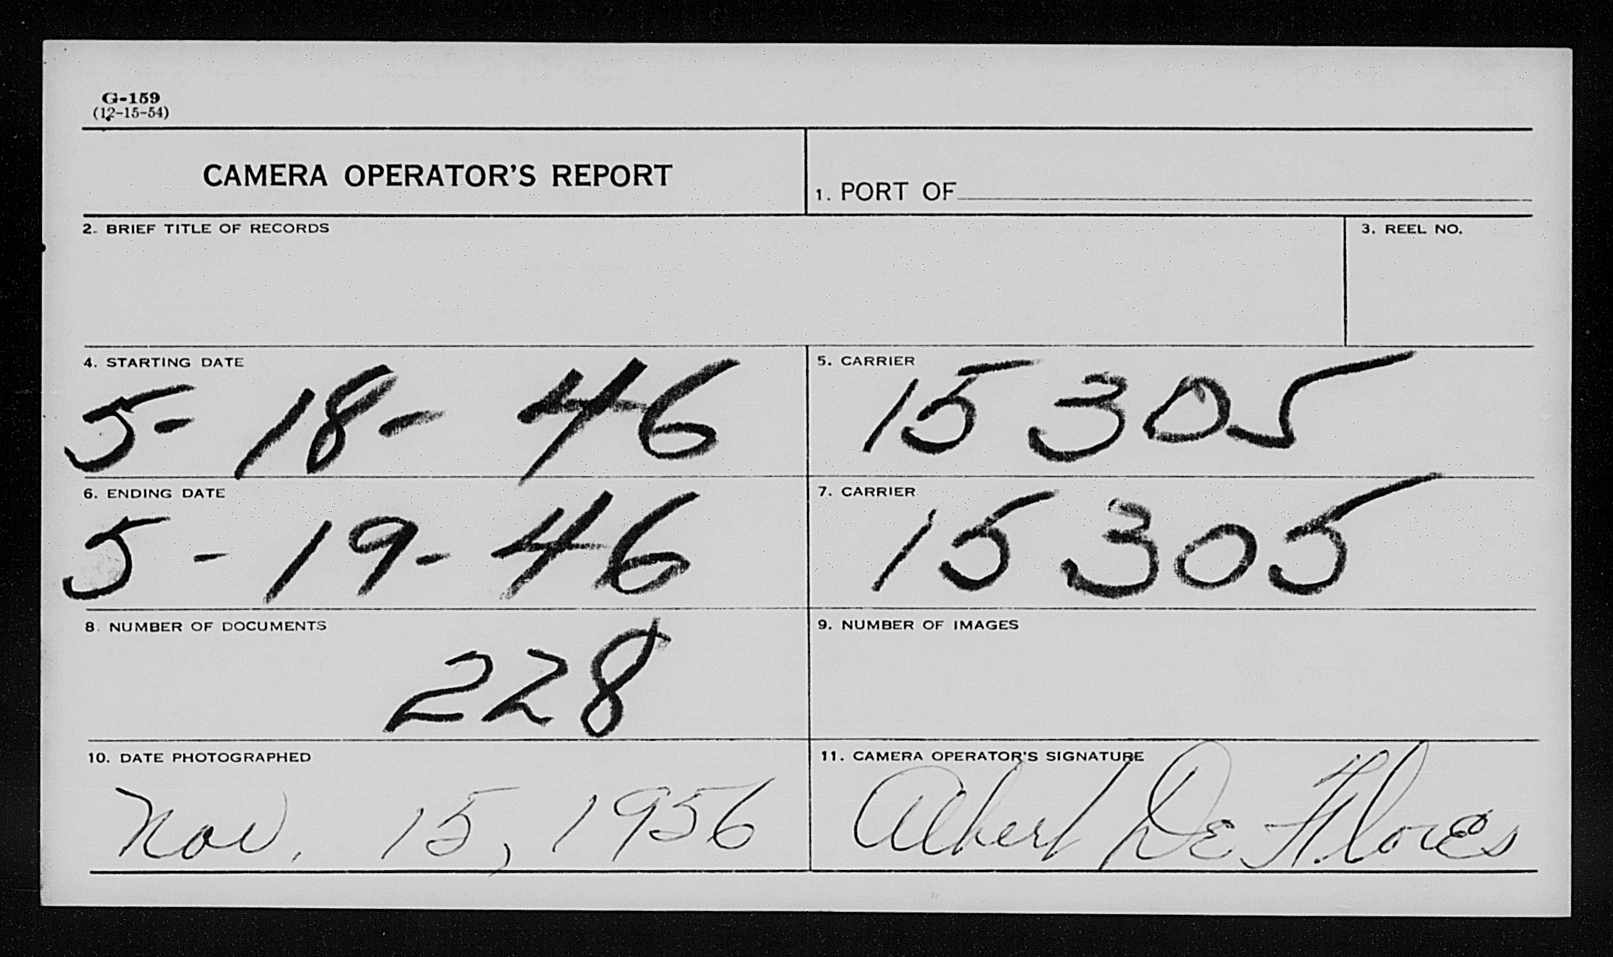 G-159
(12-15-54)
CAMERA OPERATOR'S REPORT
1. PORT OF
2. BRIEF TITLE OF RECORDS
3. REEL NO.
4. STARTING DATE
5-18-46
5. CARRIER
15305
6. ENDING DATE
5-19-46
7. CARRIER
15305
8. NUMBER OF DOCUMENTS
228
9. NUMBER OF IMAGES
10. DATE PHOTOGRAPHED
Nov. 15, 1956
11. CAMERA OPERATOR'S SIGNATURE
Albert De Flores